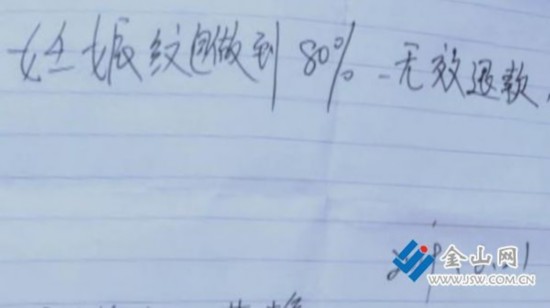 妊娠纹包做到80%.无效退款.
金山网
WWW.JSW.COM.CN